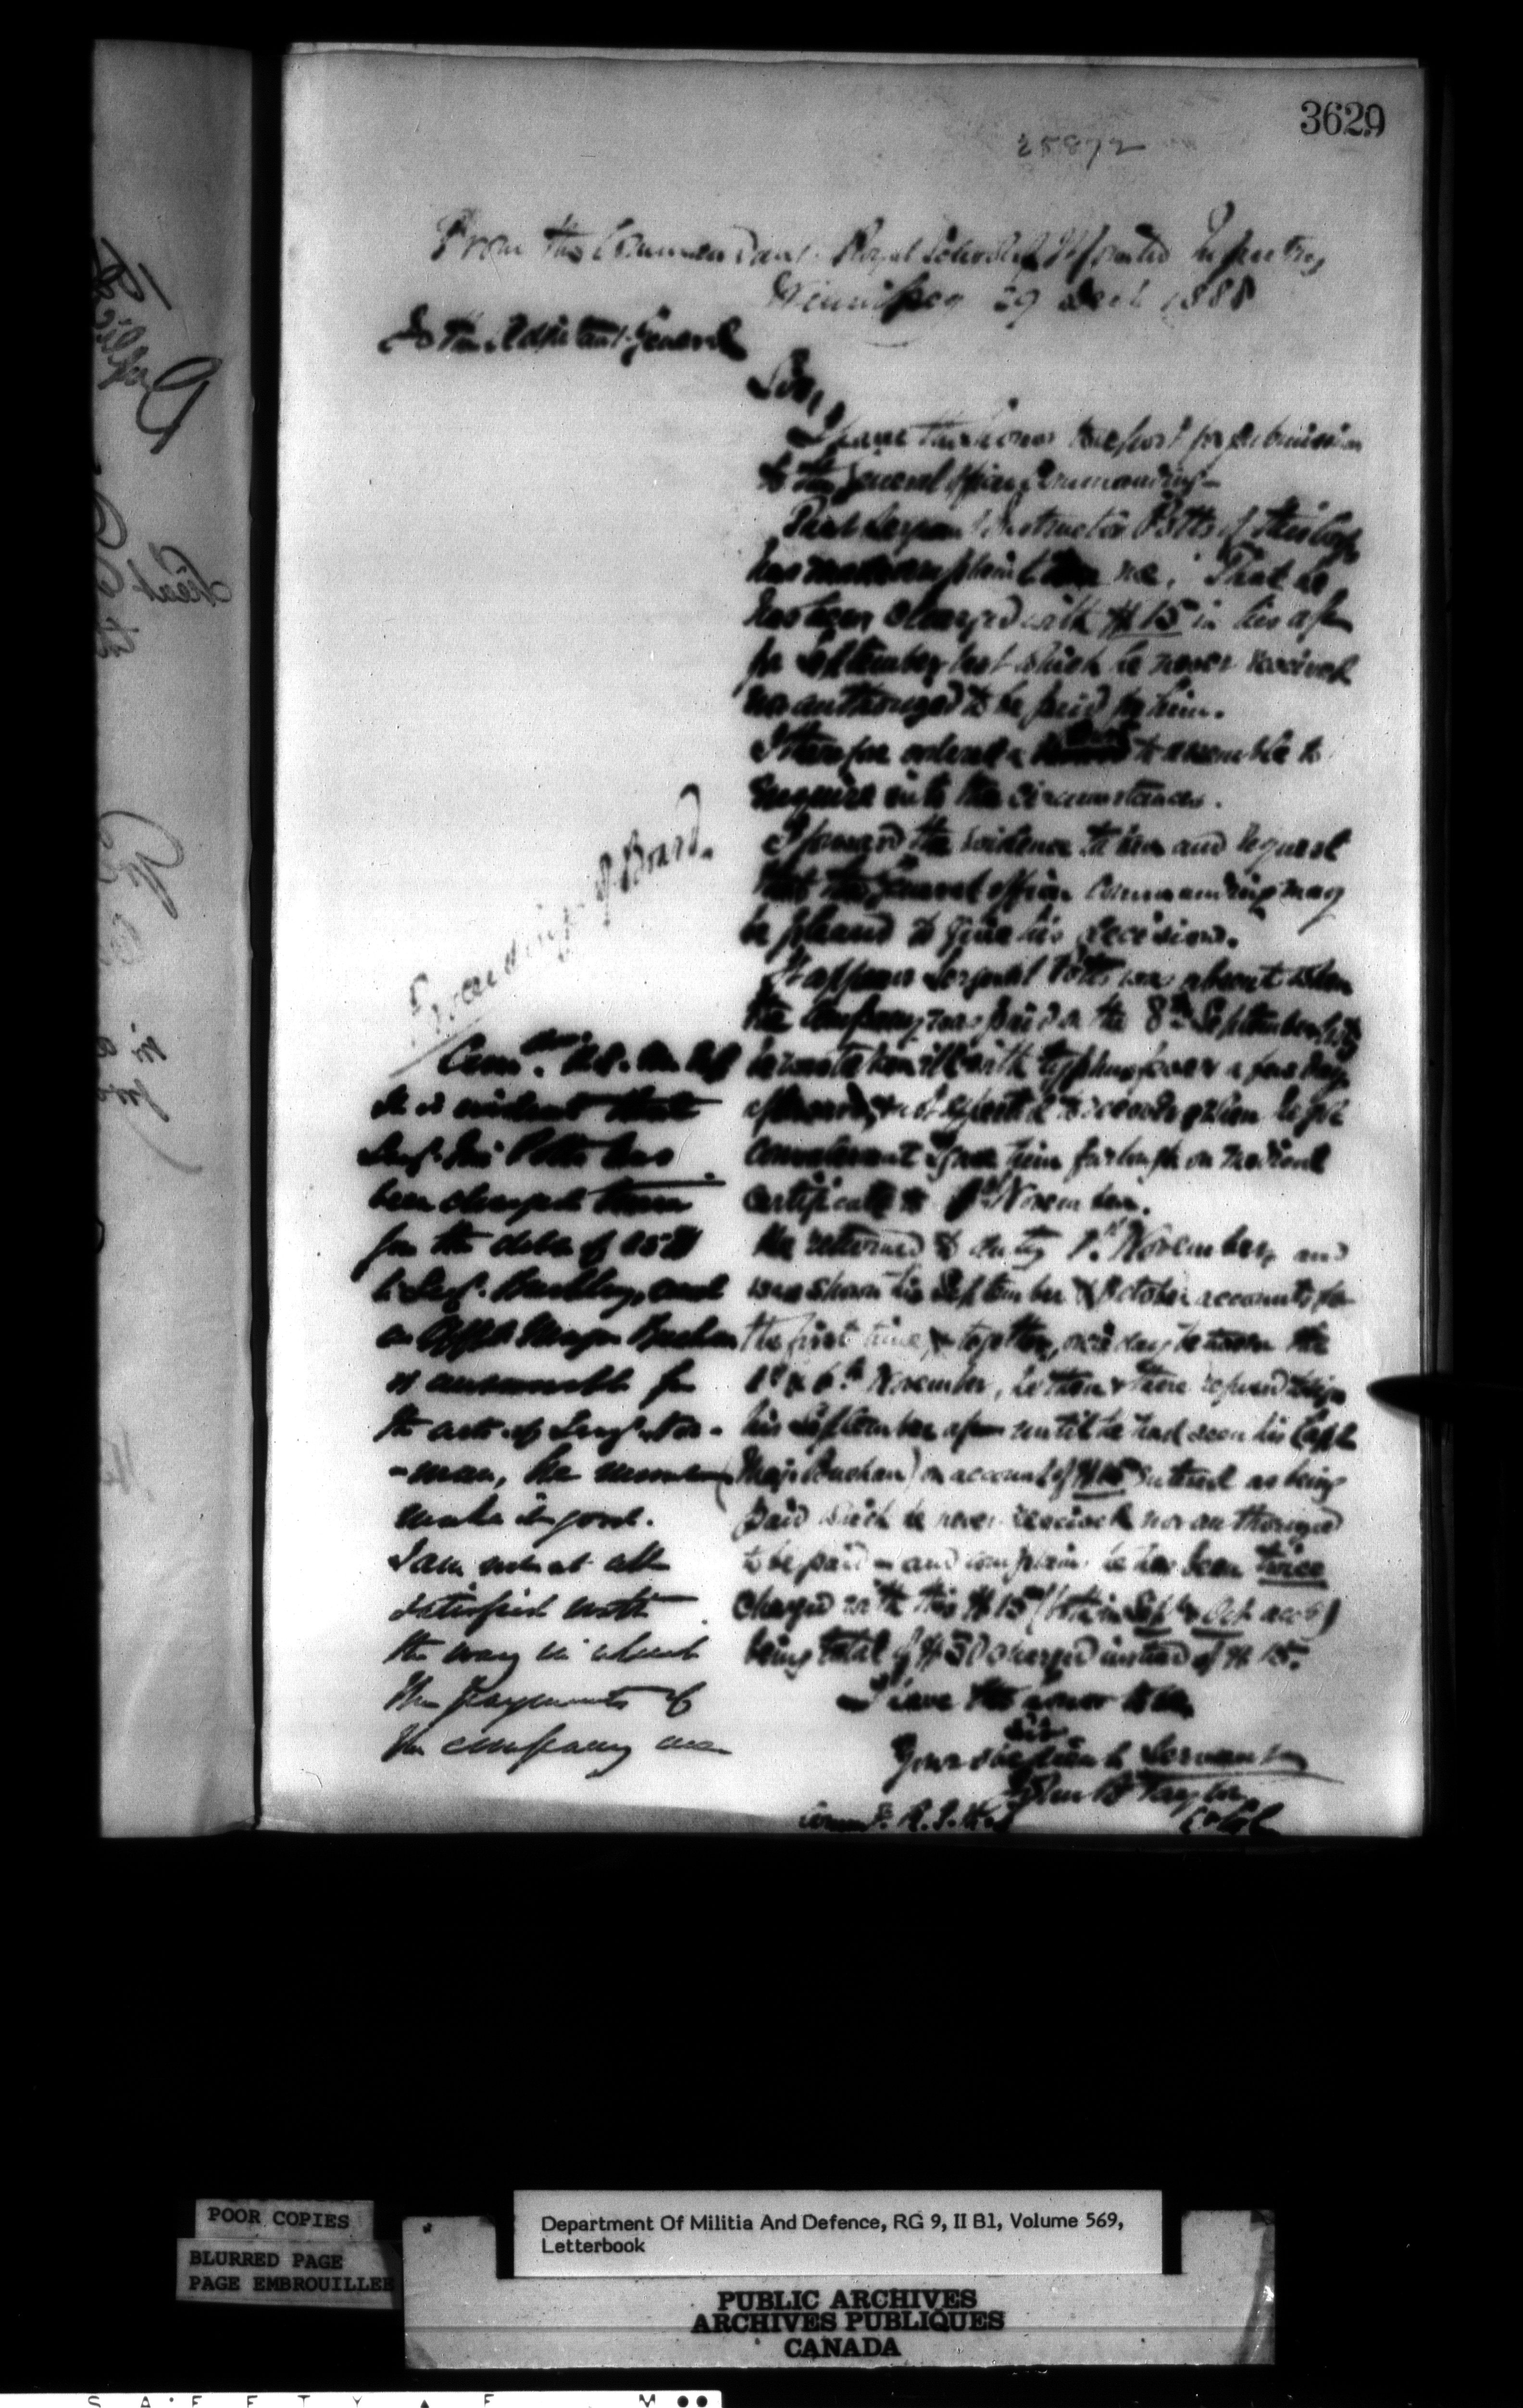 3629
25872
From the Commandant Royal School of Mounted Infantry
Winnipeg 29 Decr 1888
To the Adjutant-General
Sir,
I have the honor to report for submission
to the General Officer Commanding—
that Sergeant Instructor Potts of this Corps
has made complaint to me, That he
has been charged with $15 in his a/c
for September last which he never received
nor authorized to be paid to him.
I therefore ordered a Board to assemble to
Enquire into the circumstances.
I forward the evidence taken and request
that the General Officer Commanding may
be pleased to give his decision.
It appears Sergeant Potts was absent when
the Company was paid on the 8th September last
he was taken ill with typhus fever a few days
afterwards, & not expected to recover & when he got
convalescent I gave him furlough on medical
certificate to 1st November.
He returned to duty 1st November, and
was shown his September & October accounts for
the first time, & together, one day between the
1st & 6th November, he then & there refused to sign
his September a/c until he had seen his Capt
(Major Buchan) on account of $15 entered as being
paid which he never received nor authorized
to be paid and complains he has been twice
charged with this $15 (both in Sept & Oct accts)
being total of $30 charged instead of $15.
I have the honor to be
Sir
Your obedient Servant
John B Taylor
Lt Col
Commt. R.S.M.I
Proceedings of Board.
Comdt. R.S.M.I
It is evident that
Sergt. Ins Potts has
been charged
for the debt of 15$
to Sergt. and
as Major Buchan
is answerable for
the acts of Sergt. Nor-
-man, he must
make it good.
I am not at all
satisfied with
the way in which
the payments of
the company are
POOR COPIES
BLURRED PAGE
PAGE EMBROUILLEE
Department Of Militia And Defence, RG 9, II B1, Volume 569,
Letterbook
PUBLIC ARCHIVES
ARCHIVES PUBLIQUES
CANADA